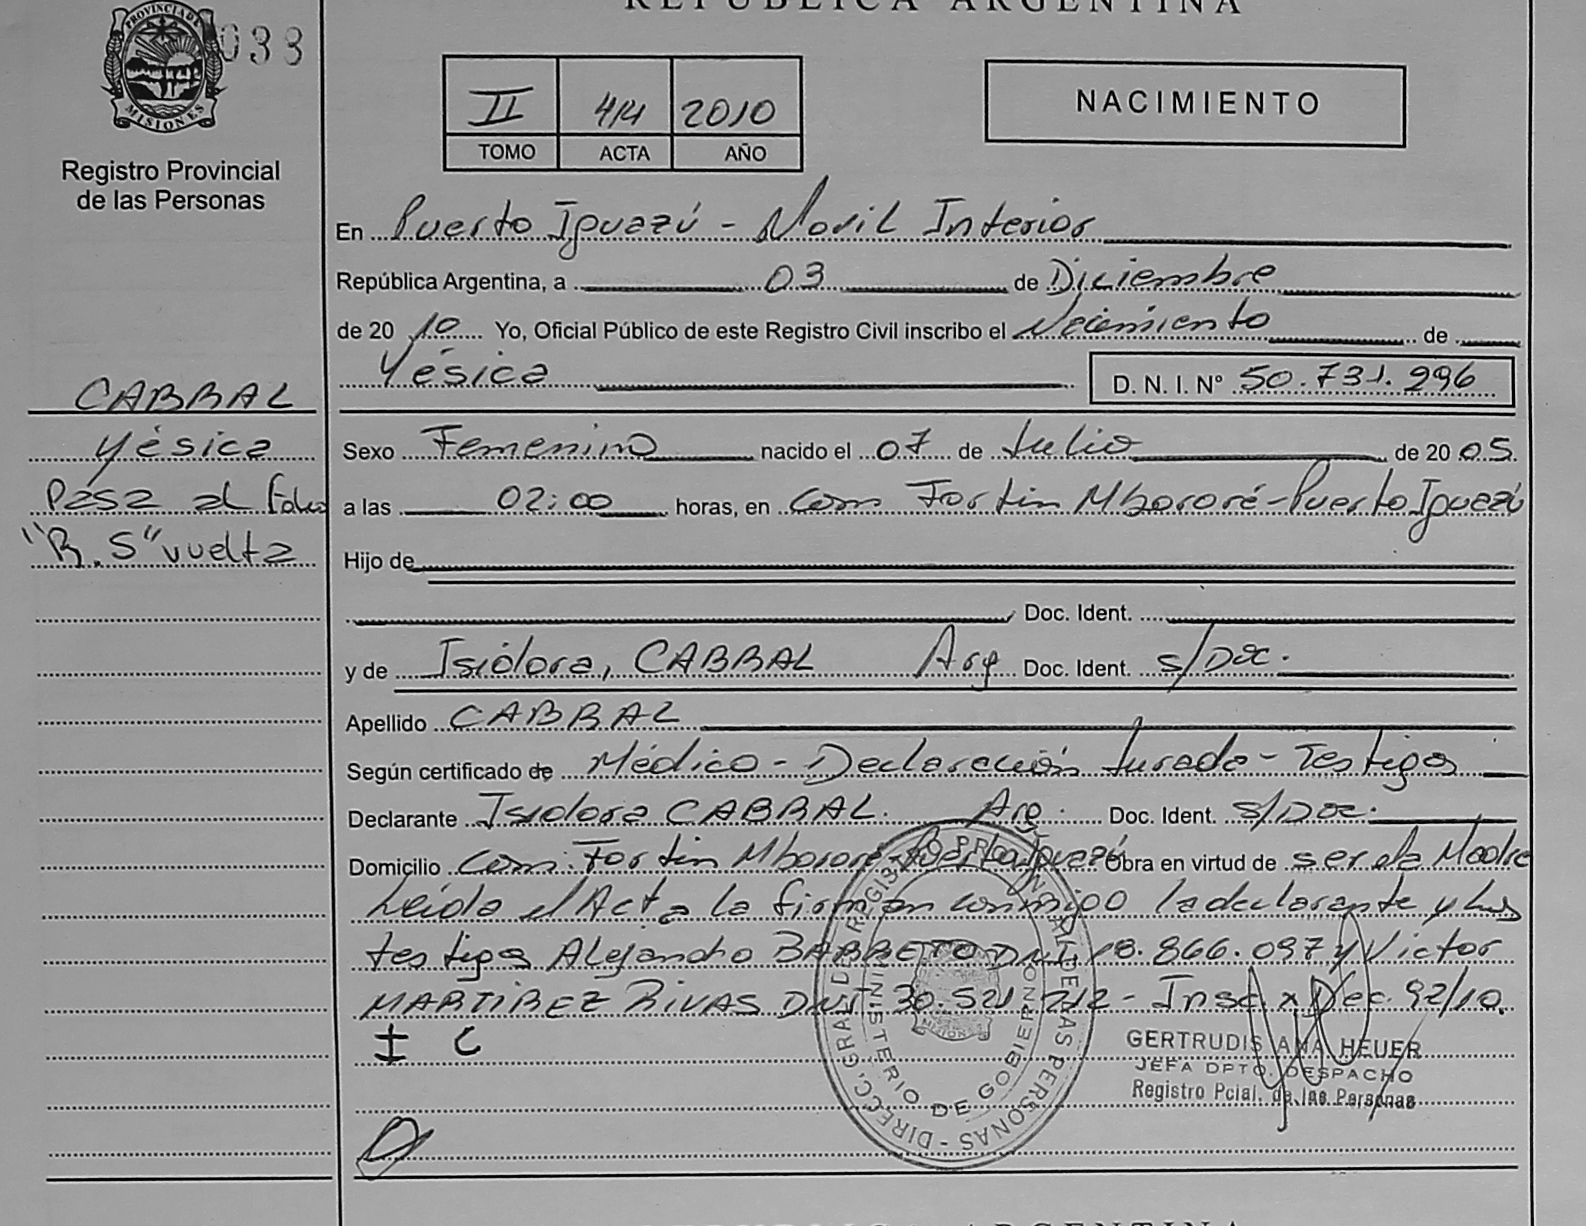 REPUBLICA ARGENTINA
PROVINCIA DE
MISIONES
033
Registro Provincial
de las Personas
II 414 2010
TOMO ACTA AÑO
NACIMIENTO
En Puerto Iguazú - Movil Interior
República Argentina, a 03 de Diciembre
de 20 10 Yo, Oficial Público de este Registro Civil inscribo el Nacimiento de
Yésica D. N. I. Nº 50.731.296
CABRAL
Yésica
Pasa al folio
"R.S" vuelta
Sexo Femenino nacido el 07 de Julio de 20 05.
a las 02:00 horas, en Com Fortin Mbororé - Puerto Iguazú
Hijo de
Doc. Ident.
y de Isidora, CABRAL Arg Doc. Ident. s/Doc.
Apellido CABRAL
Según certificado de Médico - Declaración Jurada - Testigos
Declarante Isidora CABRAL. Arg. Doc. Ident. s/Doc.
Domicilio Com. Fortin Mbororé - Puerto Iguazú Obra en virtud de ser la Madre
Leída el Acta la firman conmigo la declarante y los
testigos Alejandro BARRETO DNI 18.866.097 y Victor
MARTIREZ RIVAS DNI 30.521.212 - Insc x Dec. 92/10.
I C
DIRECC. GRAL. DE REGISTRO PROVINCIAL DE LAS PERSONAS
MINISTERIO DE GOBIERNO
MISIONES
GERTRUDIS ANA HEUER
JEFA DPTO. DESPACHO
Registro Pcial. de las Personas
REPUBLICA ARGENTINA